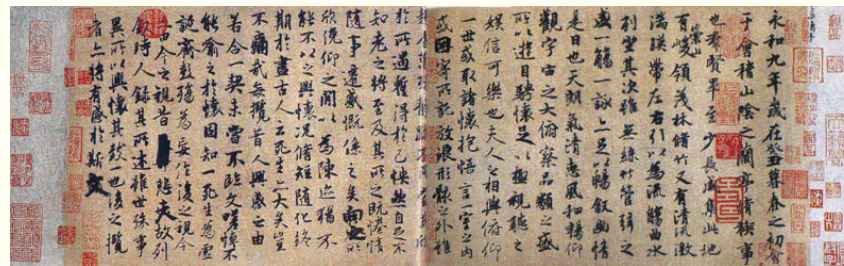 永和九年歲在癸丑暮春之初會
于會稽山陰之蘭亭脩稧事
也群賢畢至少長咸集此地
有崇山峻領茂林脩竹又有清流激
湍暎帶左右引以為流觴曲水
列坐其次雖無絲竹管弦之
盛一觴一詠亦足以暢敘幽情
是日也天朗氣清惠風和暢仰
觀宇宙之大俯察品類之盛
所以遊目騁懷足以極視聽之
娛信可樂也夫人之相與俯仰
一世或取諸懷抱悟言一室之內
或因寄所託放浪形骸之外雖
於所遇暫得於己怏然自足不
知老之將至及其所之既惓情
隨事遷感慨係之矣向之所
欣俛仰之閒以為陳迹猶不
能不以之興懷況脩短隨化終
期於盡古人云死生亦大矣豈
不痛哉每攬昔人興感之由
若合一契未嘗不臨文嗟悼不
能喻之於懷固知一死生為虛
誕齊彭殤為妄作後之視今
亦由今之視昔悲夫故列
敘時人錄其所述雖世殊事
異所以興懷其致一也後之攬
者亦將有感於斯文